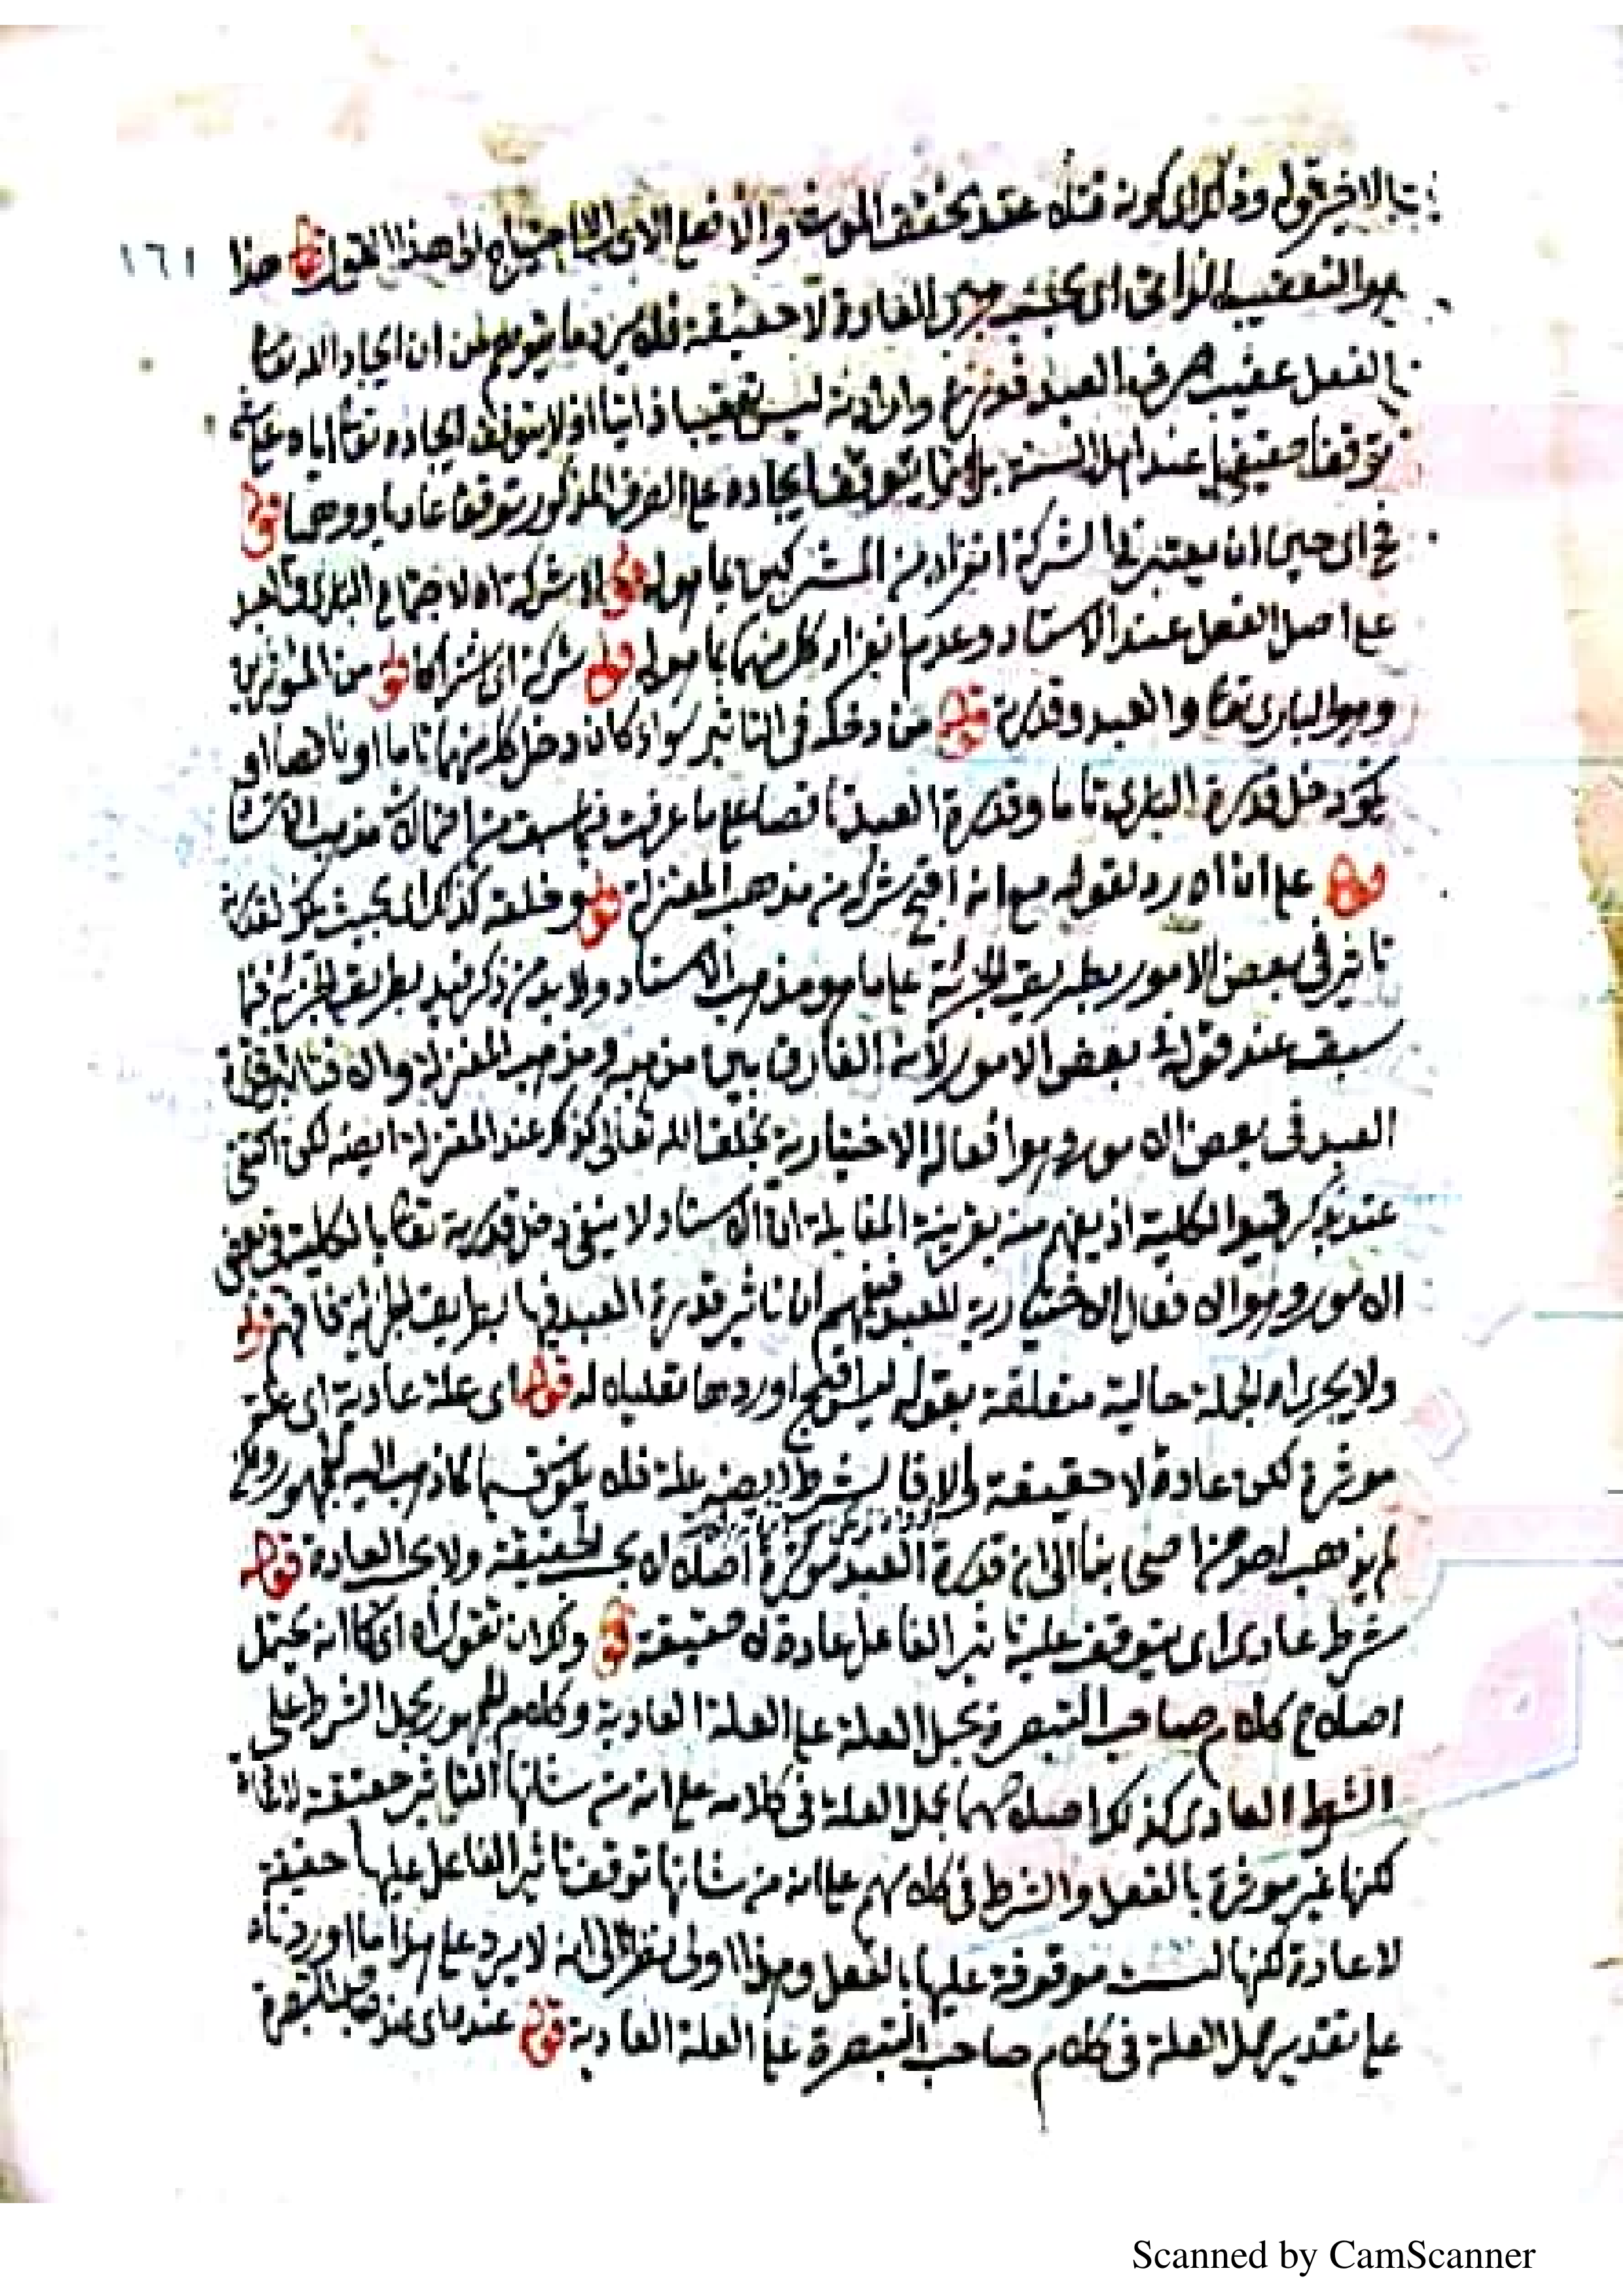 بالاخر قوله وذلك اى كونه قتله عند تحقق الموت والا فعل الاى الا احتياج الى هذا القول قوله هذا
١٦١
هو التعقيب الذاتى اى بحسب جرى العادة لا حقيقة فلا يرد ما يتوهم من ان ايجاد الله تعا
الفعل عقيب صرف العبد قدرته وارادته ليس تعقيبا ذاتيا اذ لا يتوقف ايجاده تعا اياه عليه
توقفا حقيقيا عند اهل السنة بل انما يتوقف ايجاده على الصرف المذكور توقفا عاديا ووهميا قوله
ح اى حين ان يعتبر فى الشركة انفراد من المشتركين بما هو له قوله لا شركة اه لاجتماع البارى والعبد
على اصل الفعل عند الاستاد وعدم انفراد كل منهما بما هو له قوله شركة اى اشتراك قوله من المؤثرين
وهو البارى تعا والعبد وقدرته قوله من دخله فى التاثير سواء كان دخل كل منهما تاما او ناقصا او
يكون دخل قدرة البارى تاما وقدرة العبد ناقصا على ما عرفت فيما سبق من احتمالات مذهب الاستاد
قوله على ان اه رد لقوله مع انه اقبح شركا من مذهب المعتزلة قوله وخلقه كذلك اى بحيث يكون لقدرته
تاثير فى بعض الامور بطريق الجزئية على ما هو مذهب الاستاد ولا بد من ذكر قيد بطريق الجزئية فيما
سبق عند قوله فى بعض الامور لانه الفارق بين مذهبه ومذهب المعتزلة والا فتاثير قدرة
العبد فى بعض الامور وهو افعاله الاختيارية بخلق الله تعالى كذلك عند المعتزلة ايضا لكن اكتفى
عنه بذكر قيد الكلية اذ يفهم منه بقرينة المقابلة ان الاستاد لا ينفى دخل قدرته تعا بالكلية فى بعض
الامور وهو الافعال الاختيارية للعبد فيفهم ان تاثير قدرة العبد فيها بطريق الجزئية فافهم قوله
ولا يجرى اه الجملة حالية متعلقة بقوله ليس اقبح اوردها تعليلا له قوله اى علة عادية اى علة
موثرة لكن عادة لا حقيقة والا فالشرط ايضا علة فلا يكون فيها كما ذهب اليه الجمهور
لم يذهب احد من اصحابنا الى ان قدرة العبد موثرة اصلا لا بحسب الحقيقة ولا بحسب العادة قوله
شرط عادى اى يتوقف عليه تاثير الفاعل عادة لا حقيقة قوله ولك ان تقول اه اى كما انه يحتمل
اصلاح كلام صاحب التبصرة بحمل العلة على العلة العادية وكلام الجمهور بحمل الشرط على
الشرط العادى كذلك اصلاحهما بحمل العلة فى كلامه على انه من شانها التاثير حقيقة لا عادة
لكنها غير موثرة بالفعل والشرط فى كلامهم على انه من شانها توقف تاثير الفاعل عليها حقيقة
لا عادة لكنها ليست موقوفة عليها بالفعل وهذا اولى نظرا الى انه لا يرد على هذا ما اوردناه
على تقدير حمل العلة فى كلام صاحب التبصرة على العلة العادية قوله عنده اى عند صاحب التبصرة
Scanned by CamScanner